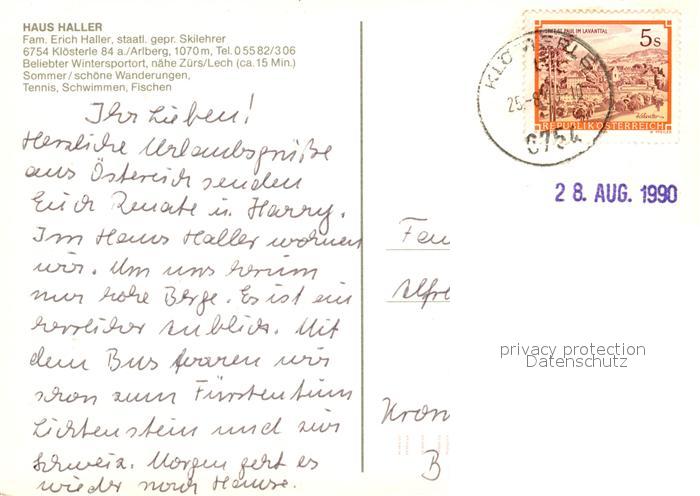 HAUS HALLER
Fam. Erich Haller, staatl. gepr. Skilehrer
6754 Klösterle 84 a./Arlberg, 1070 m, Tel. 0 55 82/3 06
Beliebter Wintersportort, nähe Zürs/Lech (ca. 15 Min.)
Sommer/schöne Wanderungen,
Tennis, Schwimmen, Fischen
Ihr Lieben!
Herzliche Urlaubsgrüße
aus Östereich senden
Euch Renate u. Harry.
Im Haus Haller wohnen
wir. Um uns herum
nur hohe Berge. Es ist ein
herrlicher Anblick. Mit
dem Bus waren wir
schon zum Fürstentum
Lichtenstein und zur
Schweiz. Morgen geht es
wieder nach Hause.
STIFT ST. PAUL IM LAVANTTAL
5s
REPUBLIK ÖSTERREICH
KLÖSTERLE
25.-8
6754
28. AUG. 1990
Fam
Alfre
Kron
B
privacy protection
Datenschutz